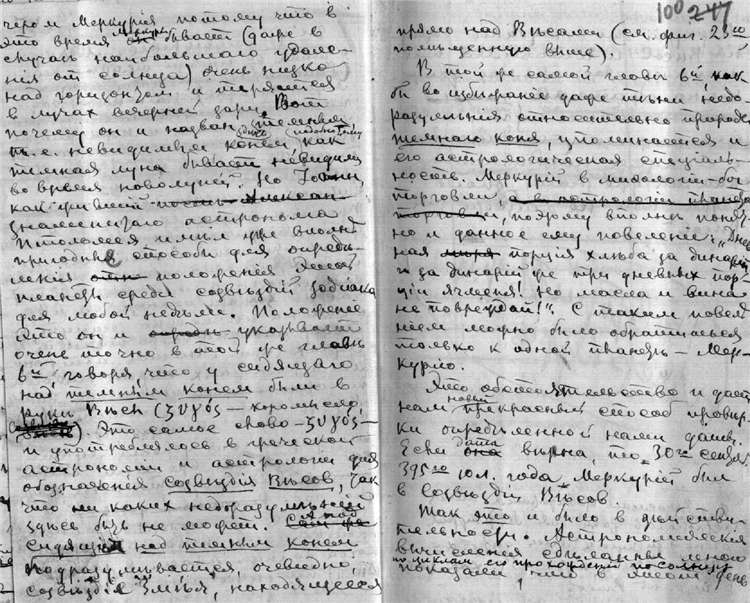 чером Меркурія потому что в
это время бывает (даже в
случаѣ наибольшаго удале-
нія от солнца) очень низко
над горизонтом и теряется
в лучах вечерней зари. Вот
почему он и назван темным
т. е. невидимым конем, как
темная луна бывает невидима
во время новолуній. Но Іоанн,
как живший
знаменитаго астронома
Птоломея имѣл уже вполнѣ
пригодные способы для опредѣ-
ленія положенія этой
планеты среди созвѣздій Зодіака
для любой недѣли. Положеніе
это он и указывает
очень точно в той же главѣ
6й говоря что у сидящаго
над темным конем были в
руках Вѣсы (ζυγός — коромысло,
Это самое слово — ζυγός —
и употреблялось в греческой
астрономіи и астрологіи для
обозначенія созвѣздія Вѣсов, так
что ни каких недоразумѣній
здѣсь быть не может.
сидящій над темным конем
подразумѣвается, очевидно,
созвѣздіе Змѣя, находящееся
100 247
прямо над Вѣсами (см. фиг. 23ю
помѣщенную выше).
В той же самой главѣ 6й, как
бы во избѣжаніе даже тѣни недо-
разумѣнія относительно природы
темнаго коня, упоминается и
его астрологическая спеціаль-
ность. Меркурій в мифологіи — бог
торговли, а в астрологіи планета
торговли, поэтому вполнѣ понят-
но и данное ему повеленіе: „Днев-
ная порція хлѣба за динарій
и за динарій же три дневных пор-
ціи ячменя! Но масла и вина
не повреждай!". С таким повелѣ-
нием можно было обратиться
только к одной планетѣ — Мер-
курію.
Это обстоятельство и дает
нам новый прекрасный способ провѣр-
ки опредѣленной нами даты.
Если дата вѣрна, то 30го сентяб.
395го юл. года Меркурій был
в созвѣздіи Вѣсов.
Так это и было в дѣйстви-
тельности. Астрономическія
вычисленія сдѣланныя мною
по циклам его прохожденій по солнцу
показали что в этот день
1